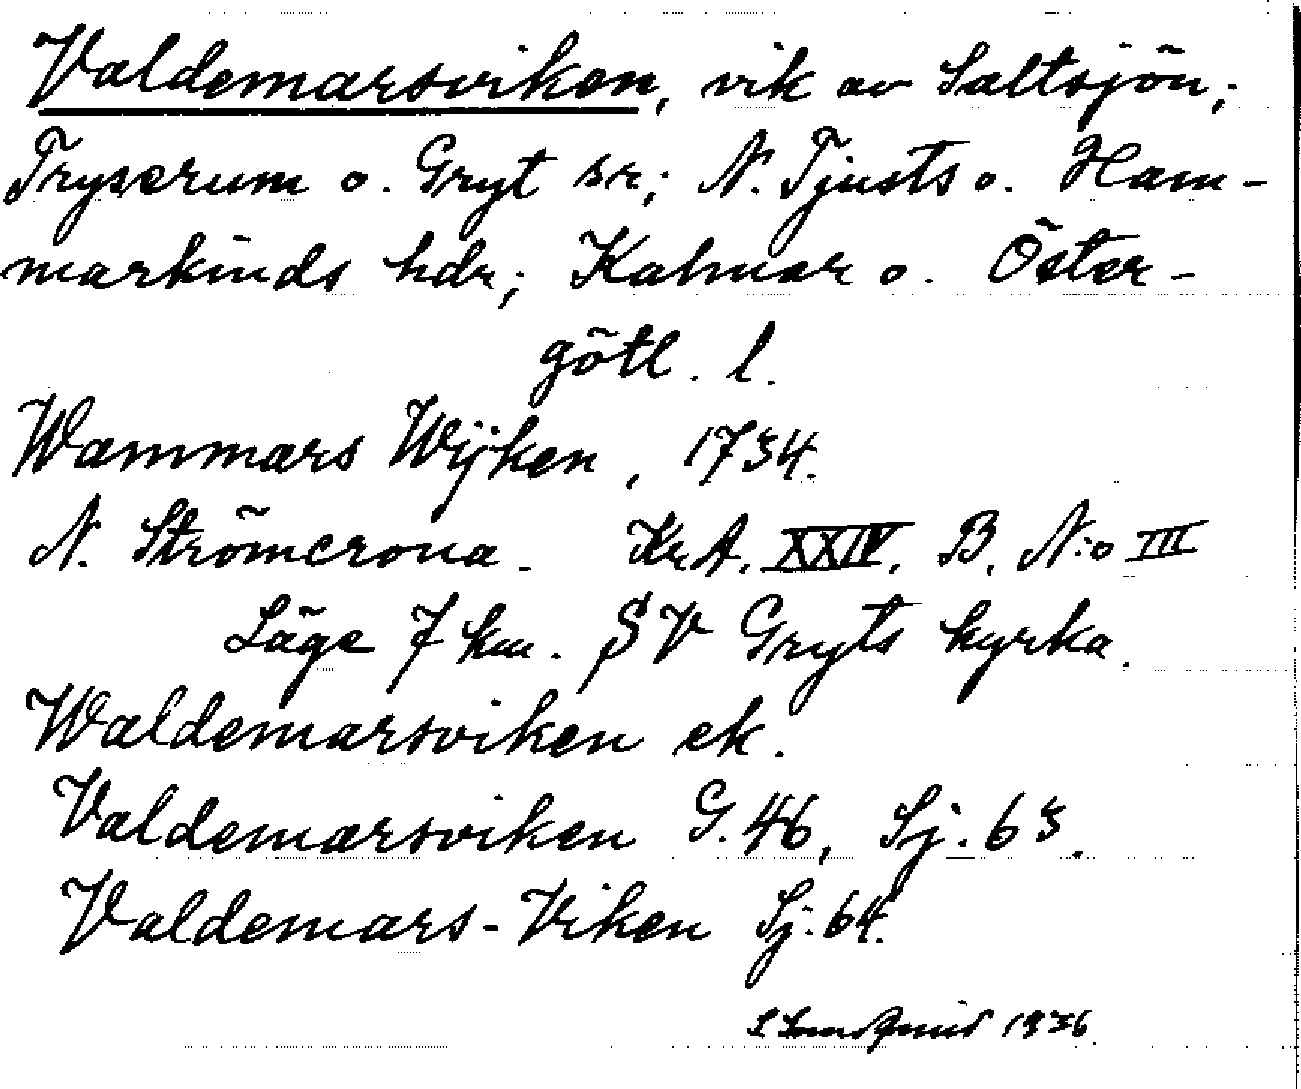 Valdemarsviken, vik av Saltsjön;
Tryserum o. Gryt sr; N. Tjusts o. Ham-
markinds hdr; Kalmar o. Öster-
götl. l.
Wammars Wijken, 1734.
N. Strömcrona. Kr.A. XXIV. B. N:o III
Läge 7 km. SV Gryts kyrka.
Waldemarsviken ek.
Valdemarsviken G. 46, Sj. 63.
Valdemars-Viken Sj. 64.